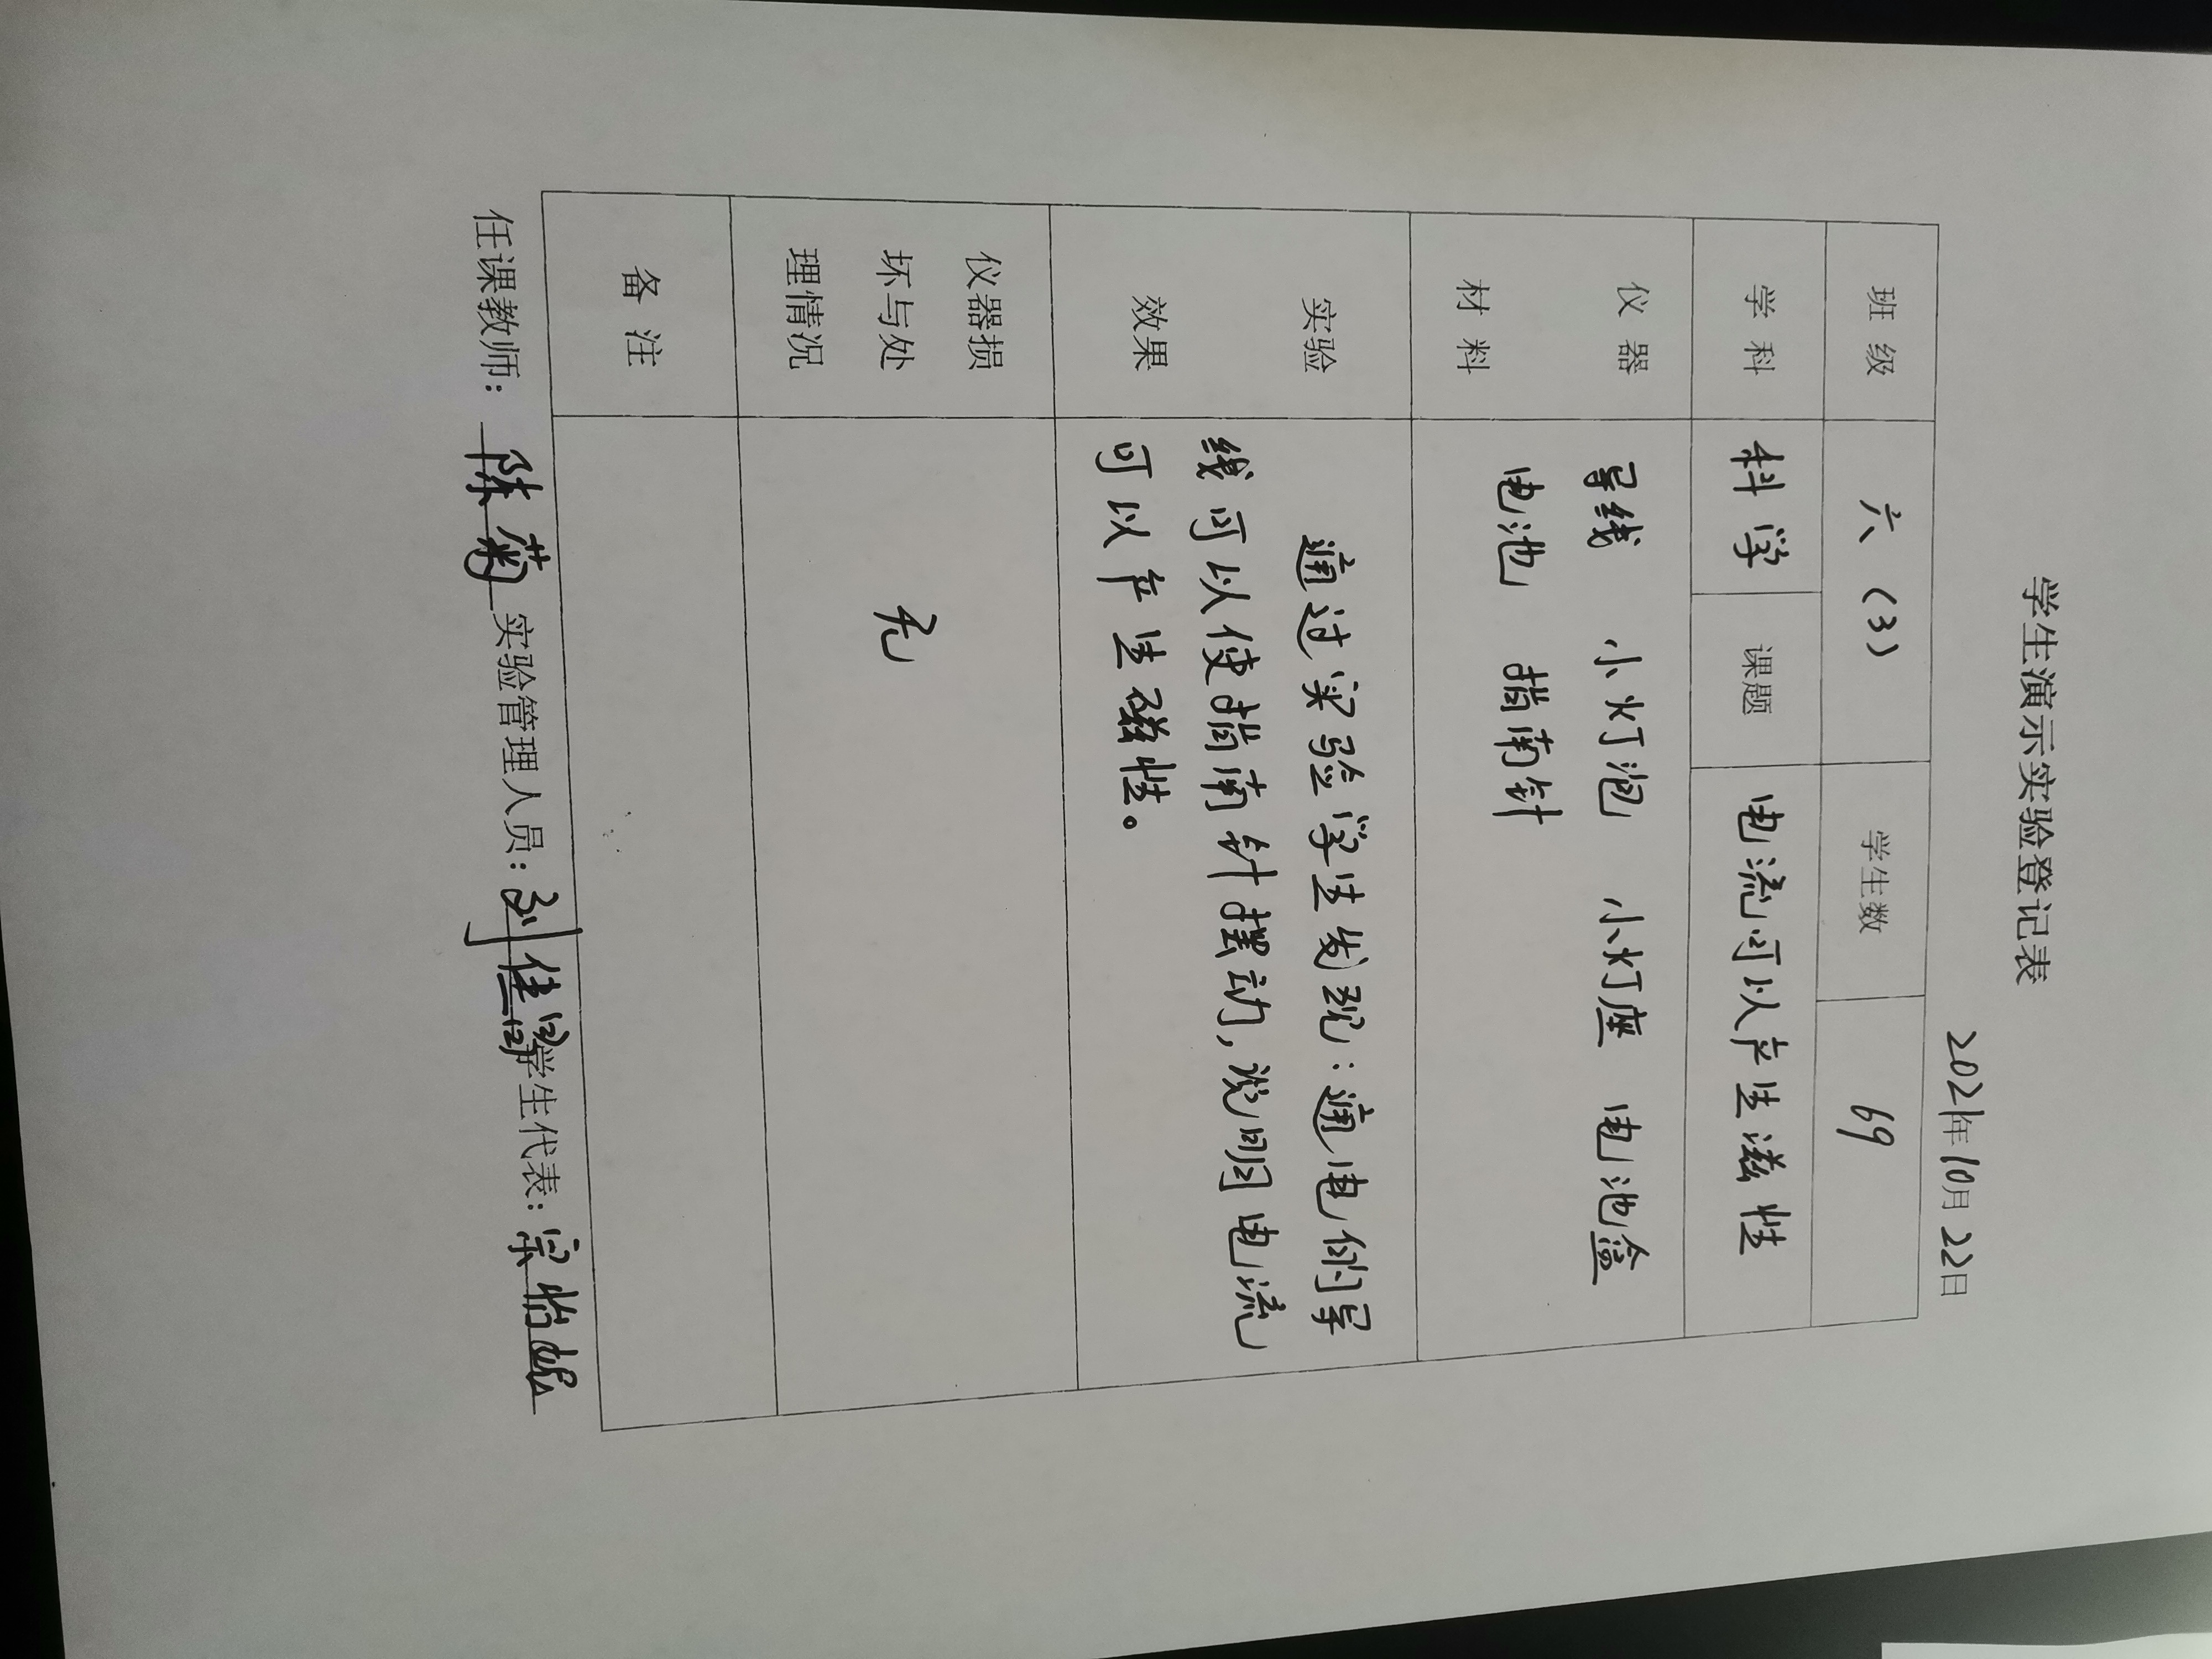 学生演示实验登记表
2021年10月22日
班 级 六（3） 学生数 69
学 科 科学 课题 电流可以产生滋性
仪 器 导线 小灯泡 小灯座 电池盒
材 料 电池 指南针
实验 通过实验学生发现：通电的导
效果 线可以使指南针摆动，说明电流
可以产生磁性。
仪器损
坏与处 无
理情况
备 注
任课教师：陈菊 实验管理人员：刘佳 学生代表：宗怡